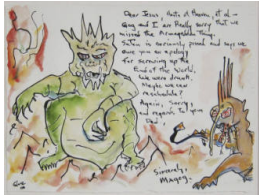 Dear Jesus, Hosts of Heaven, et al -
Gog and I are Really sorry that we
missed the Armageddon Thing.
Satan is seriously pissed and says we
owe you an apology
for screwing up the
End of the World.
We were drunk.
Maybe we can
reschedule?
Again, sorry
and regards to your
Dad.
Sincerely,
Magog.